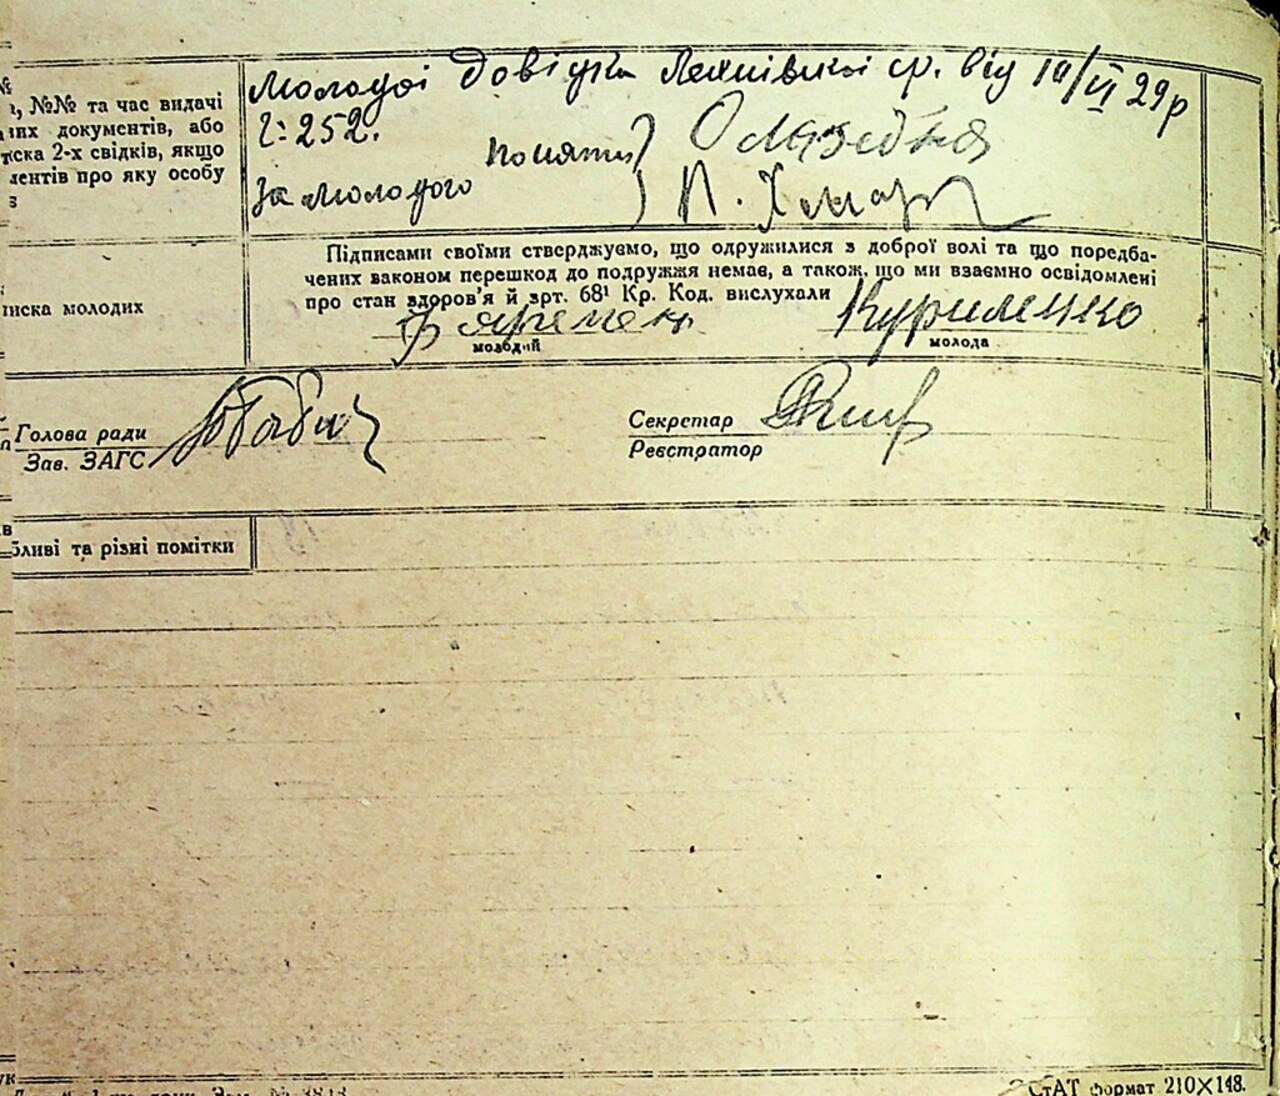 Молодої довідка Лехнівської ср. від 10/VI 29р
№, №№ та час видачі
них документів, або
писка 2-х свідків, якщо
ментів про яку особу
в
Ч: 252.
Поняті
За молодого
П. Хмар
Підписами своїми стверджуємо, що одружилися з доброї волі та що поредба-
чених законом перешкод до подружжя немає, а також, що ми взаємно освідомлені
про стан здоров'я й зрт. 68¹ Кр. Код. вислухали
писка молодих
Яременко
Куриленко
молодий
молода
Голова ради
Зав. ЗАГС
Секретар
Реєстратор
бливі та різні помітки
СтАТ формат 210×148.